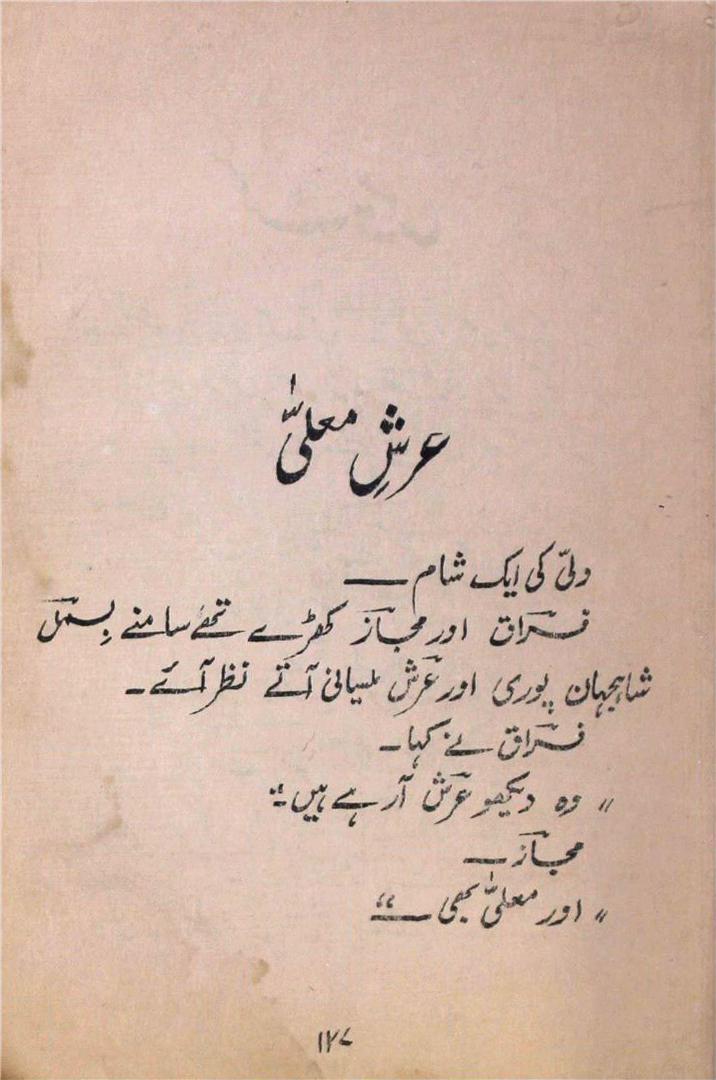 عرشِ معلیّٰ
دلّی کی ایک شام ــــ
فراقؔ اور مجازؔ کھڑے تھے سامنے بسملؔ
شاہجہان پوری اور عرشؔ ملسیانی آتے نظر آئے۔
فراقؔ نے کہا۔
"وہ دیکھو عرشؔ آ رہے ہیں۔"
مجازؔ ــــ
"اور معلیّٰ بھی ــــ"
۱۲۷